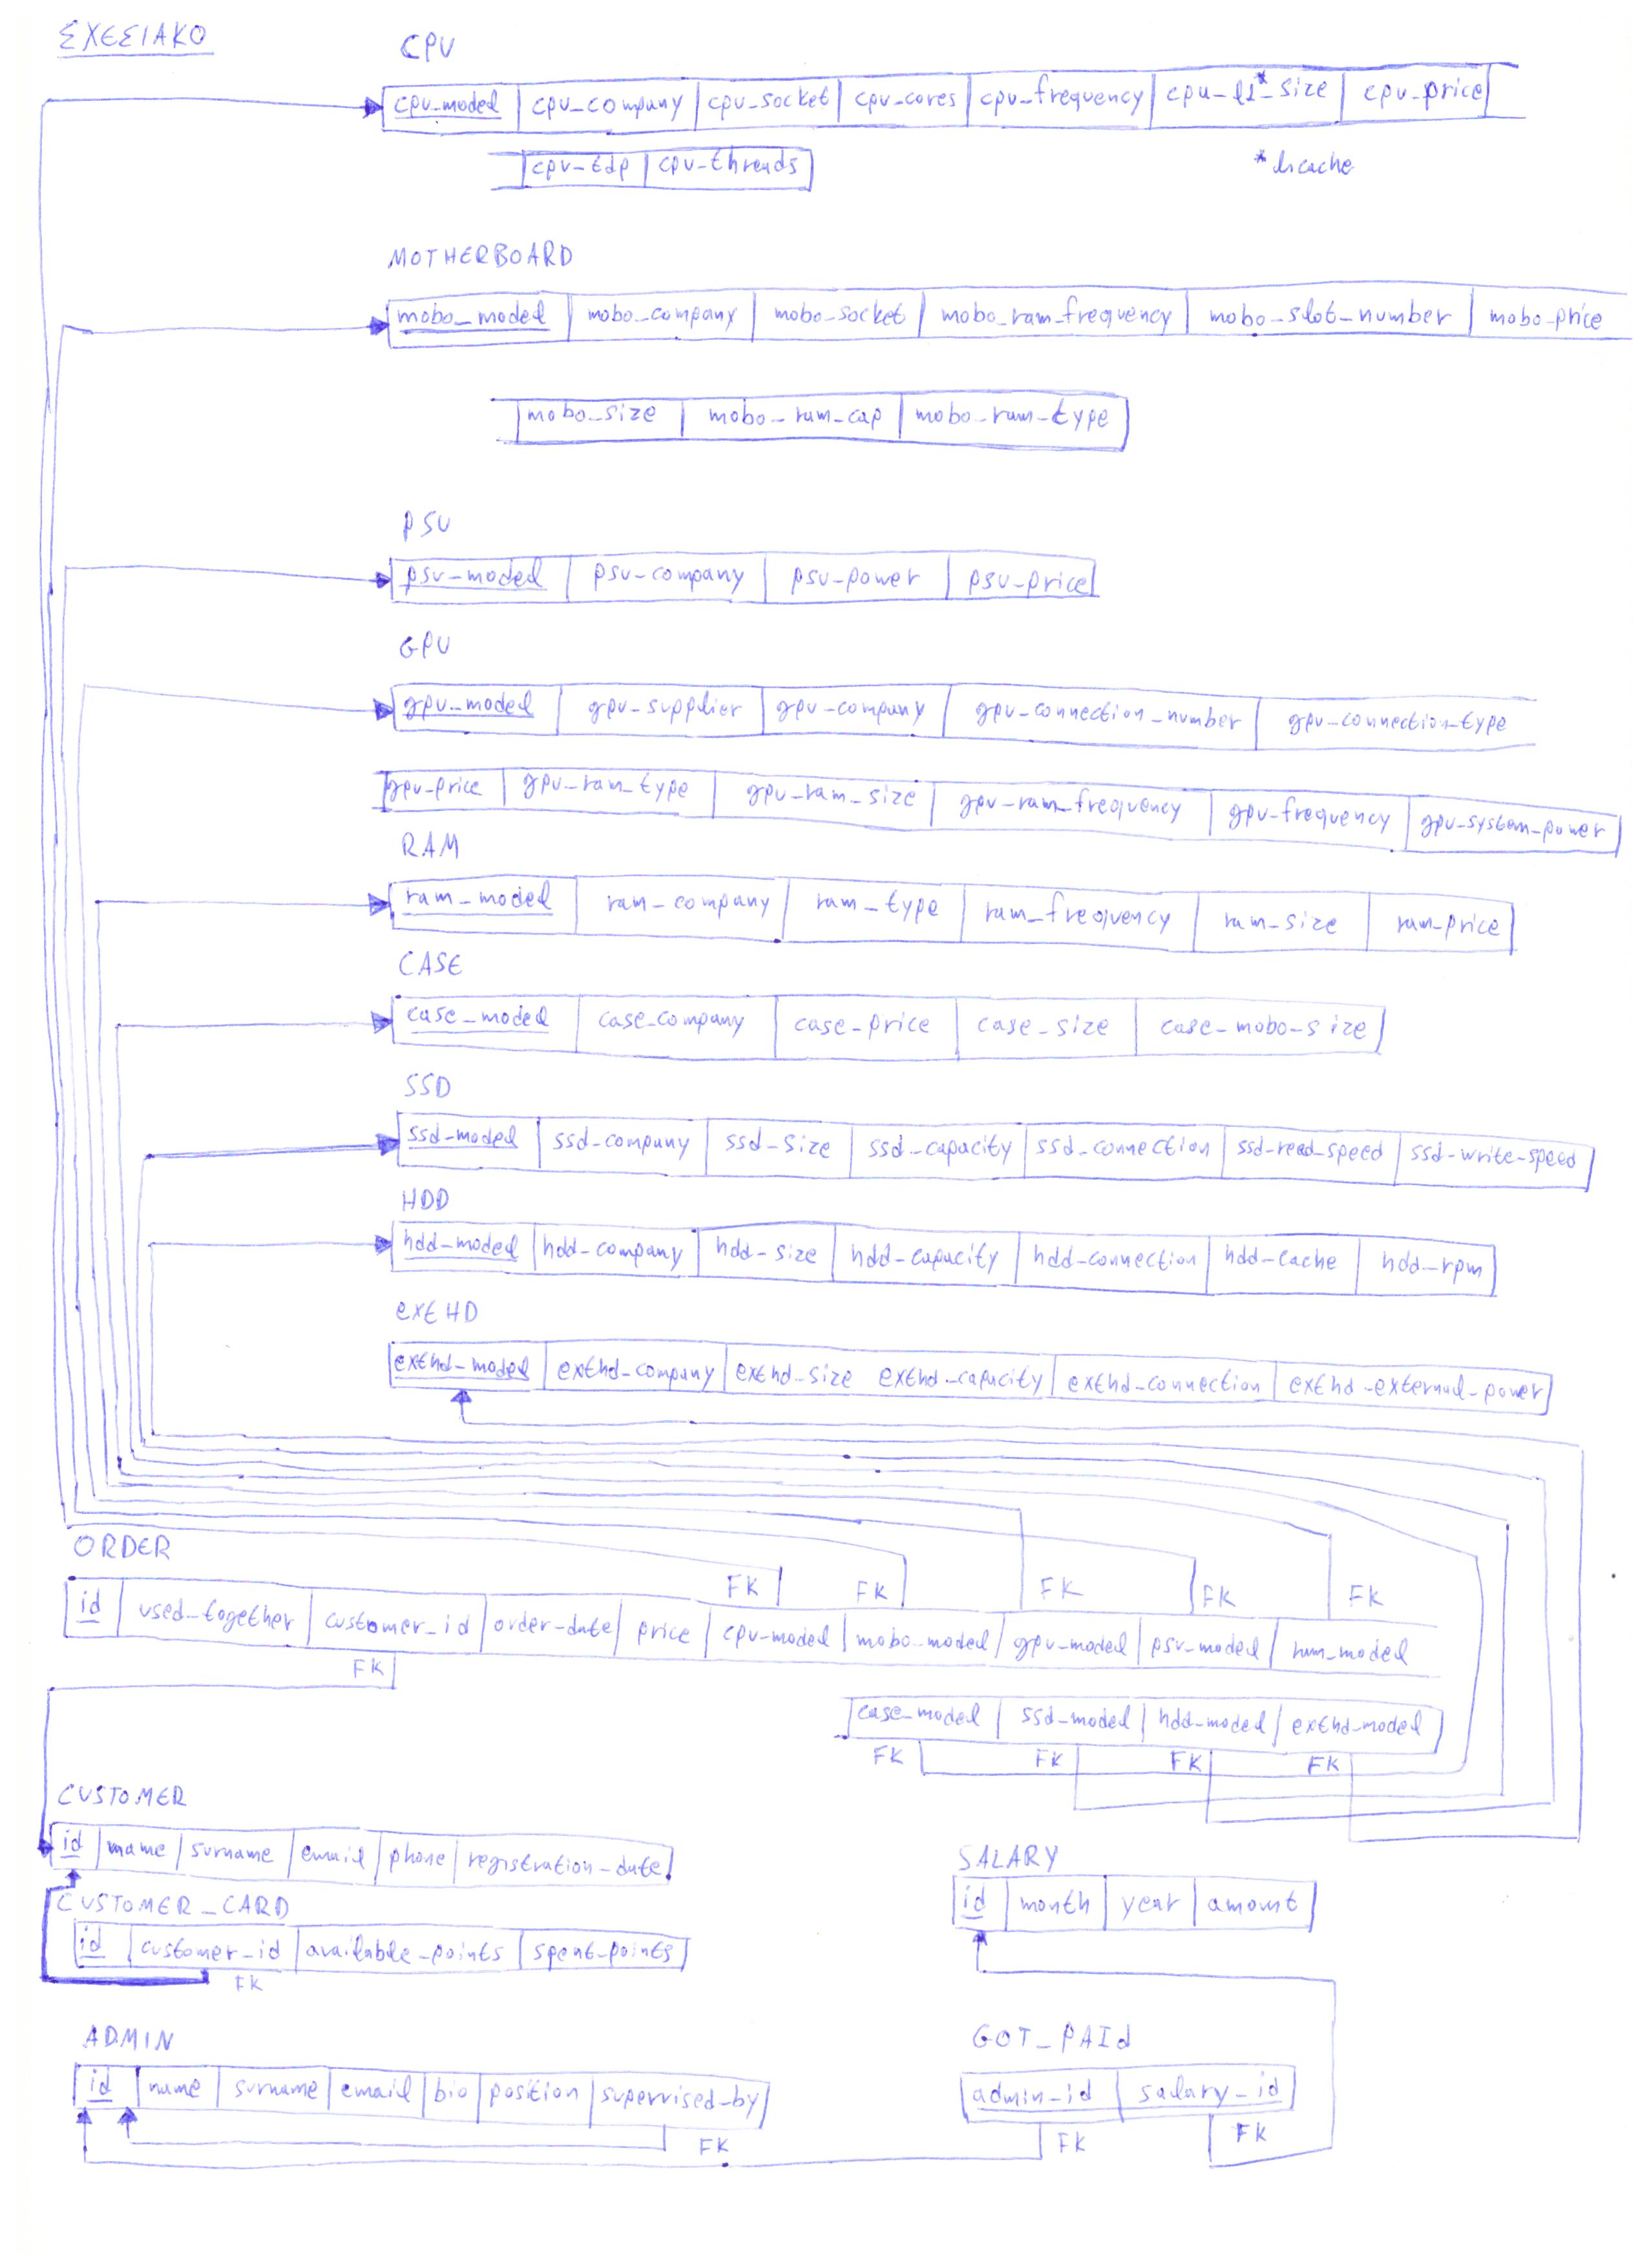 ΣΧΕΣΙΑΚΟ
CPU
cpu_model cpu_company cpu_socket cpu_cores cpu_frequency cpu_l1*_size cpu_price
cpu_tdp cpu_threads
MOTHERBOARD
mobo_model mobo_company mobo_socket mobo_ram_frequency mobo_slot_number mobo_price
mobo_size mobo_ram_cap mobo_ram_type
PSU
psu_model psu_company psu_power psu_price
GPU
gpu_model gpu_supplier gpu_company gpu_connection_number gpu_connection_type
gpu_price gpu_ram_type gpu_ram_size gpu_ram_frequency gpu_frequency gpu_system_power
RAM
ram_model ram_company ram_type ram_frequency ram_size ram_price
CASE
case_model case_company case_price case_size case_mobo_size
SSD
ssd_model ssd_company ssd_size ssd_capacity ssd_connection ssd_read_speed ssd_write_speed
HDD
hdd_model hdd_company hdd_size hdd_capacity hdd_connection hdd_cache hdd_rpm
extHD
exthd_model exthd_company exthd_size exthd_capacity exthd_connection exthd_external_power
ORDER
FK FK FK FK FK
id used_together customer_id order_date price cpu_model mobo_model gpu_model psu_model ram_model
FK
case_model ssd_model hdd_model exthd_model
FK FK FK FK
CUSTOMER
id name surname email phone registration_date
CUSTOMER_CARD
id customer_id available_points spent_points
FK
SALARY
id month year amount
ADMIN
id name surname email bio position supervised_by
FK
GOT_PAId
admin_id salary_id
FK FK